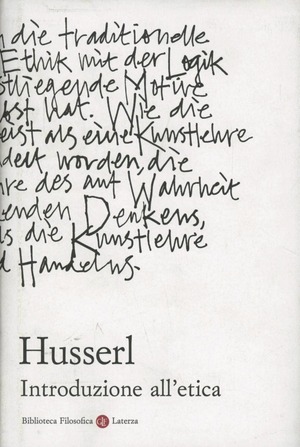 n die traditionelle
Ethik mit der Logik
stliegende Motive
sst hat. Wie die
eist als eine Kunstlehre
delt worden, die
re des auf Wahrheit
enden Denkens,
s die Kunstlehre
d Handelns.
Husserl
Introduzione all'etica
Biblioteca Filosofica Laterza